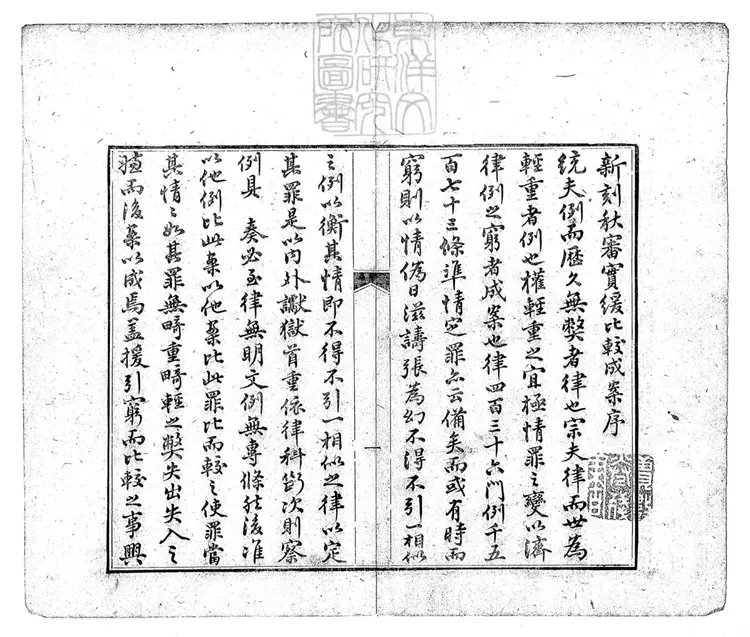 新刻秋審實緩比較成案序
統夫例而歷久無獘者律也宗夫律而世為
輕重者例也權輕重之宜極情罪之變以濟
律例之窮者成案也律四百三十六門例千五
百七十三條準情定罪亦云備矣而或有時而
窮則以情偽日滋譸張為幻不得不引一相似
之例以衡其情即不得不引一相似之律以定
其罪是以内外讞獄首重依律科斷次則察
例具 奏必至律無明文例無專條然後准
以他例比此案以他案比此罪比而較之使罪當
其情情如其罪無畸重畸輕之獘失出失入之
慮而後案以成焉蓋援引窮而比較之事興
一
東洋文化研究所圖書